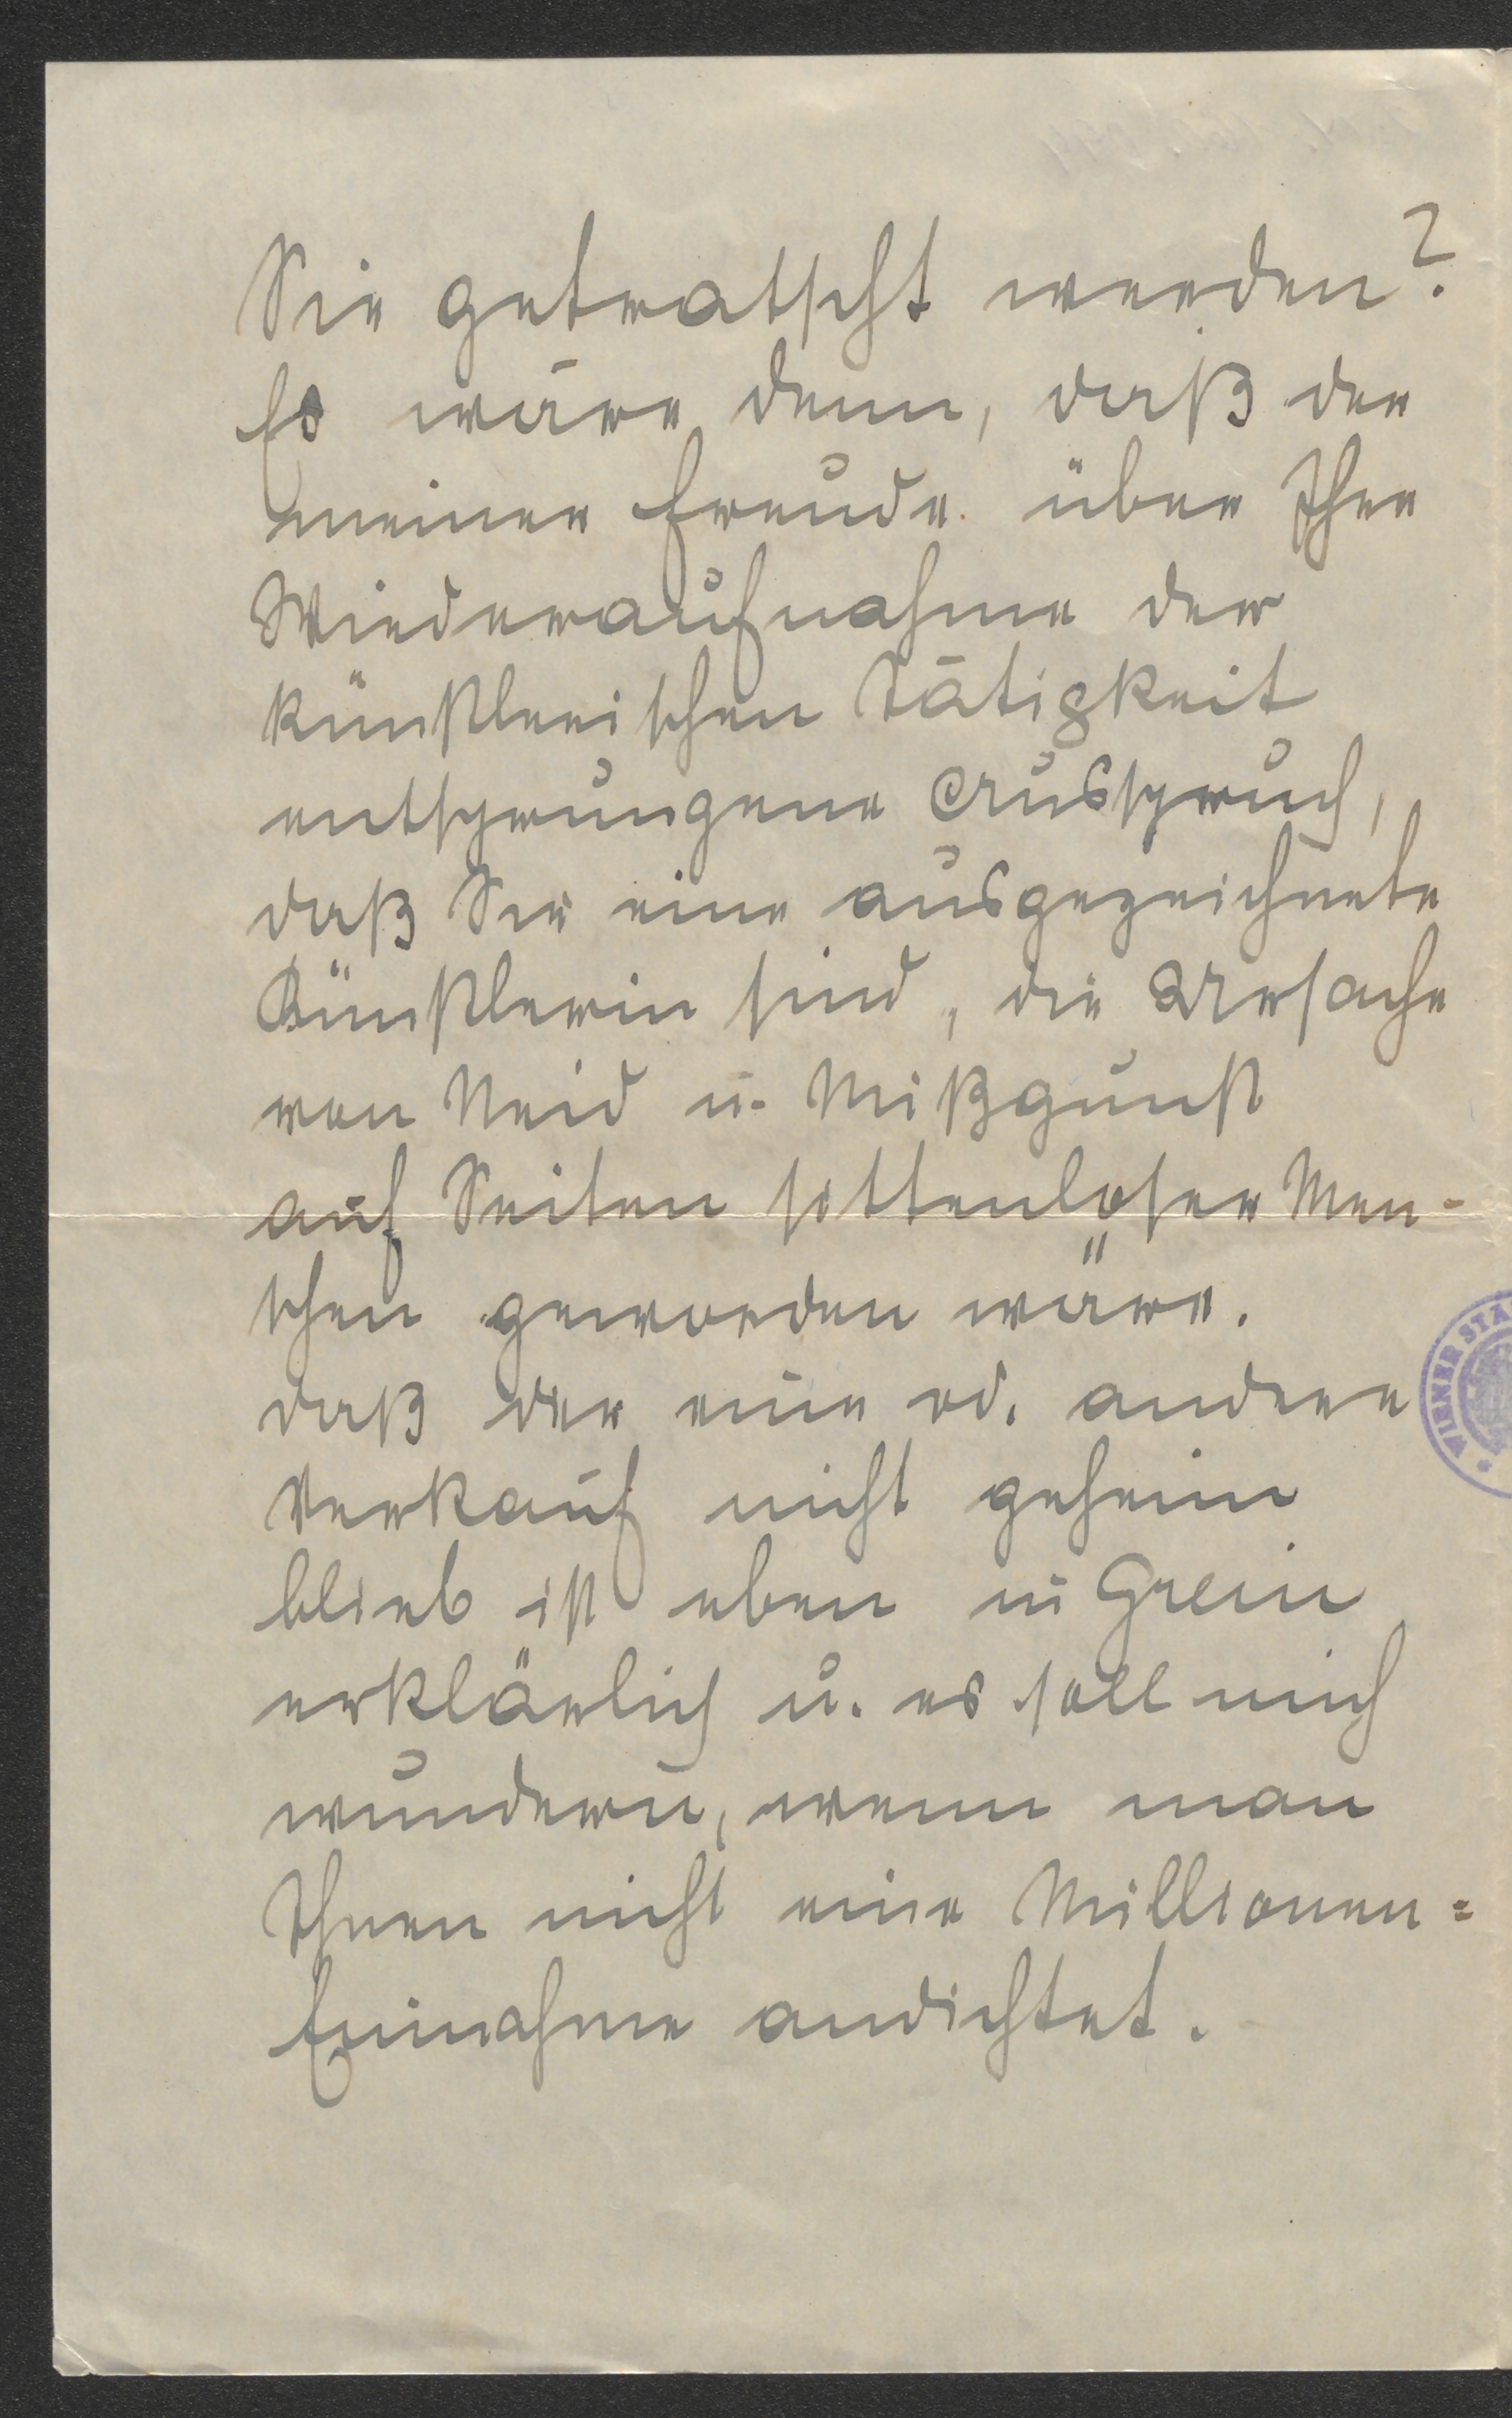 Sie getratscht werden?
Es wäre denn, daß der
meiner Freude über Ihre
Wiederaufnahme der
künstlerischen Tätigkeit
entsprungene Ausspruch,
daß Sie eine ausgezeichnete
Künstlerin sind, die Ursache
von Neid u. Mißgunst
auf Seiten sittenloser Men-
schen geworden wäre.
Daß der eine od. andere
Verkauf nicht geheim
blieb ist eben in Grein
erklärlich u. es soll mich
wundern, wenn man
Ihnen nicht eine Millionen=
Einnahme andichtet.
WIENER STA